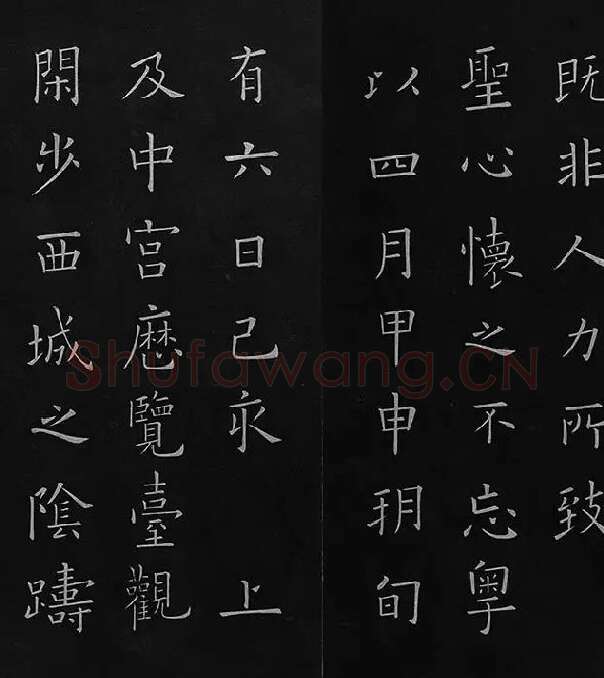 既非人力所致
聖心懷之不忘粵
以四月甲申朔旬
有六日己亥 上
及中宮厯覽臺觀
閑步西城之陰躊
Shufawang.CN